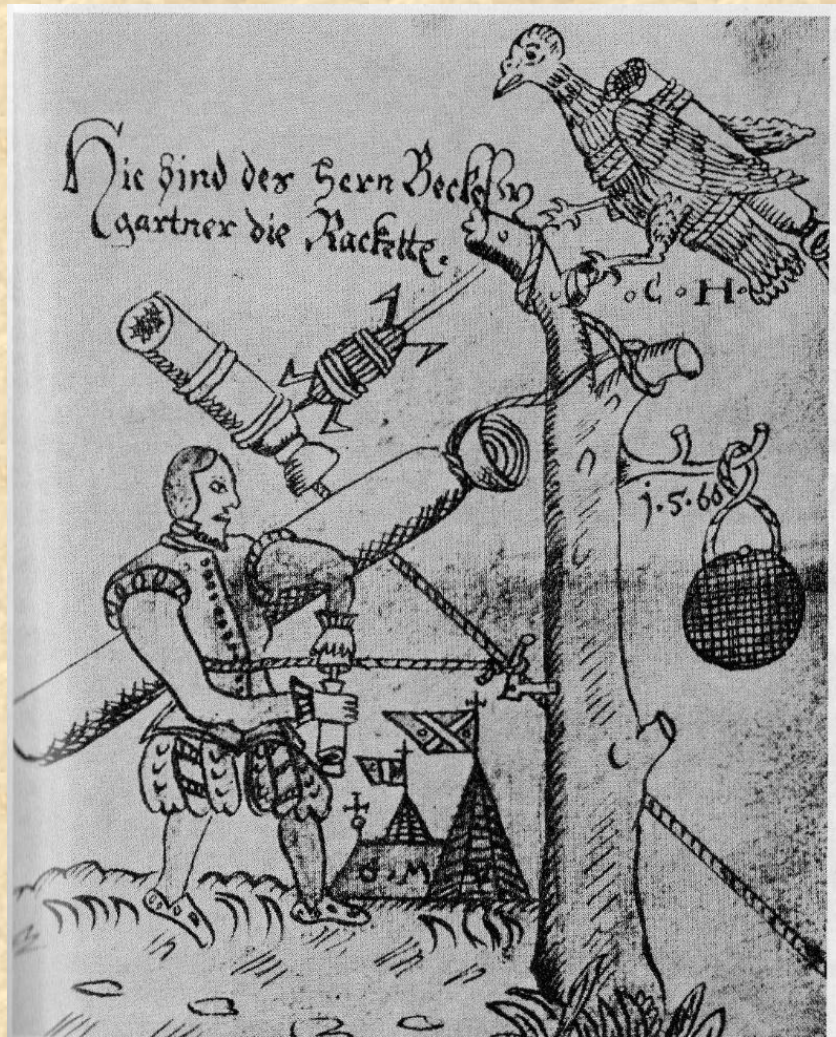 Hie sind der Hern Beckesy
gartner die Rackette.
. C . H .
j. 5. 60
d . M